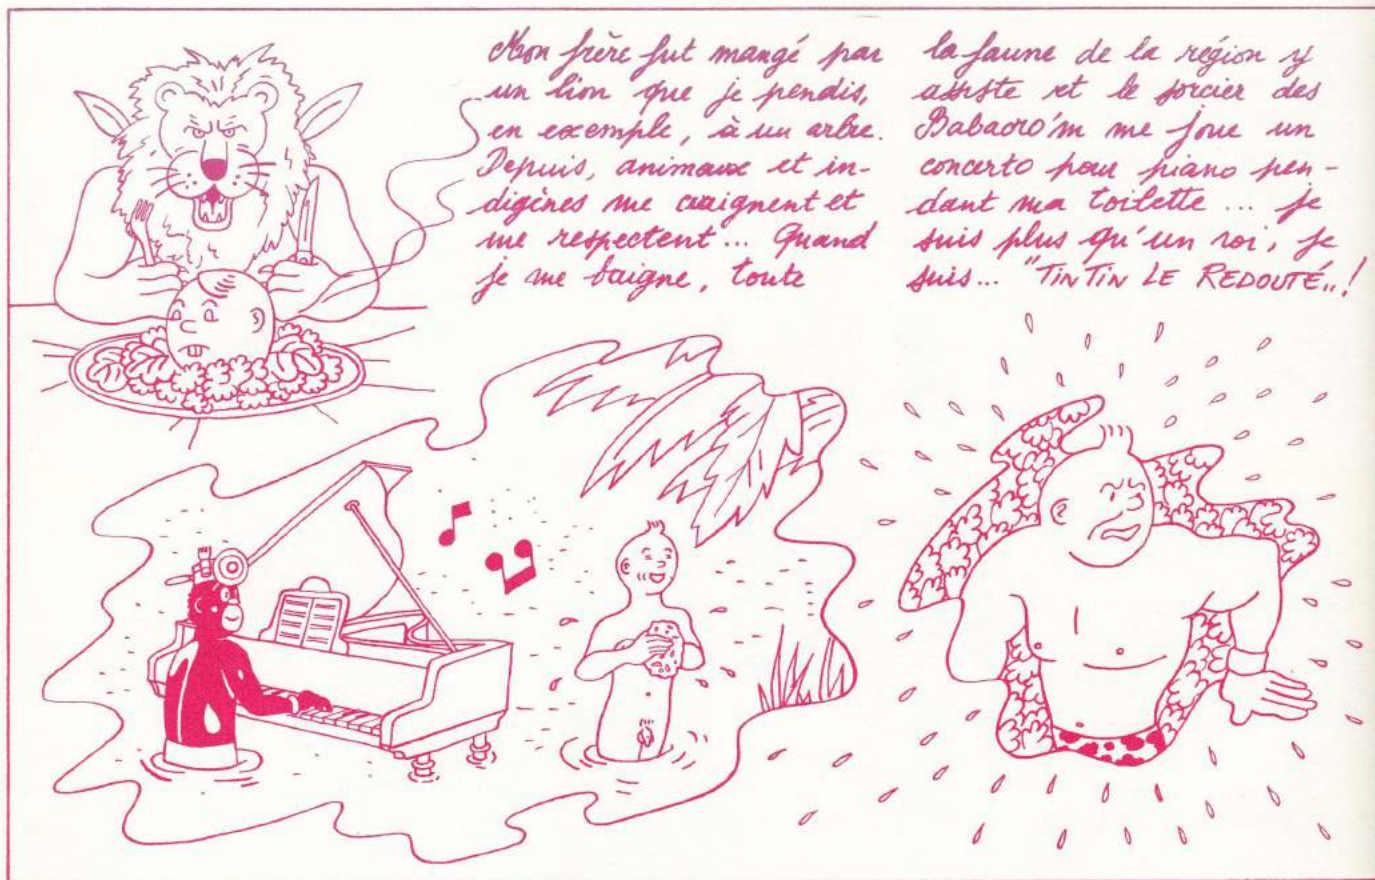 Mon frère fut mangé par
un lion que je pendis,
en exemple, à un arbre.
Depuis, animaux et in-
digènes me craignent et
me respectent... Quand
je me baigne, toute
la faune de la région y
assiste et le sorcier des
Babaoro'm me joue un
concerto pour piano pen-
dant ma toilette... je
suis plus qu'un roi, je
suis... "TINTIN LE REDOUTÉ„!